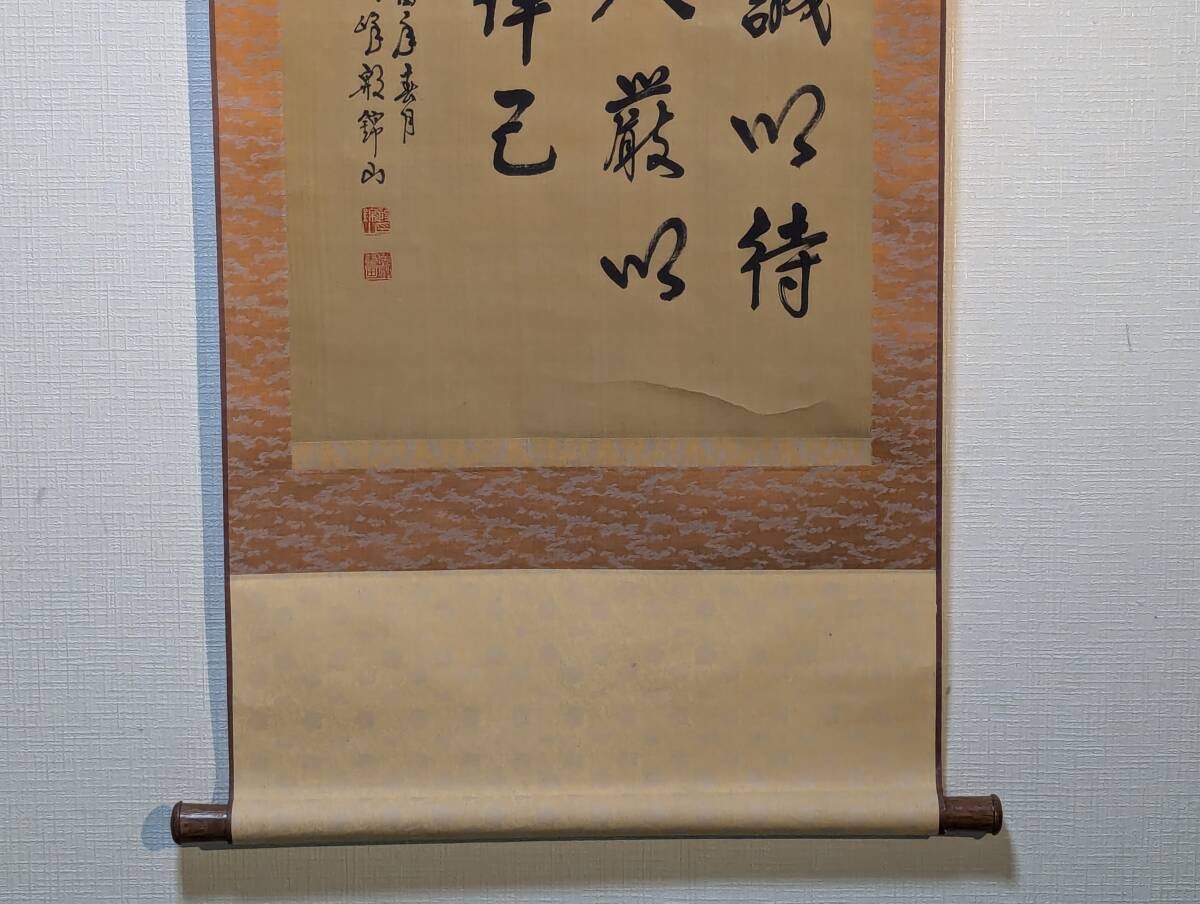 誠以待
人嚴以
律己
酉年春月
峰敬錦山